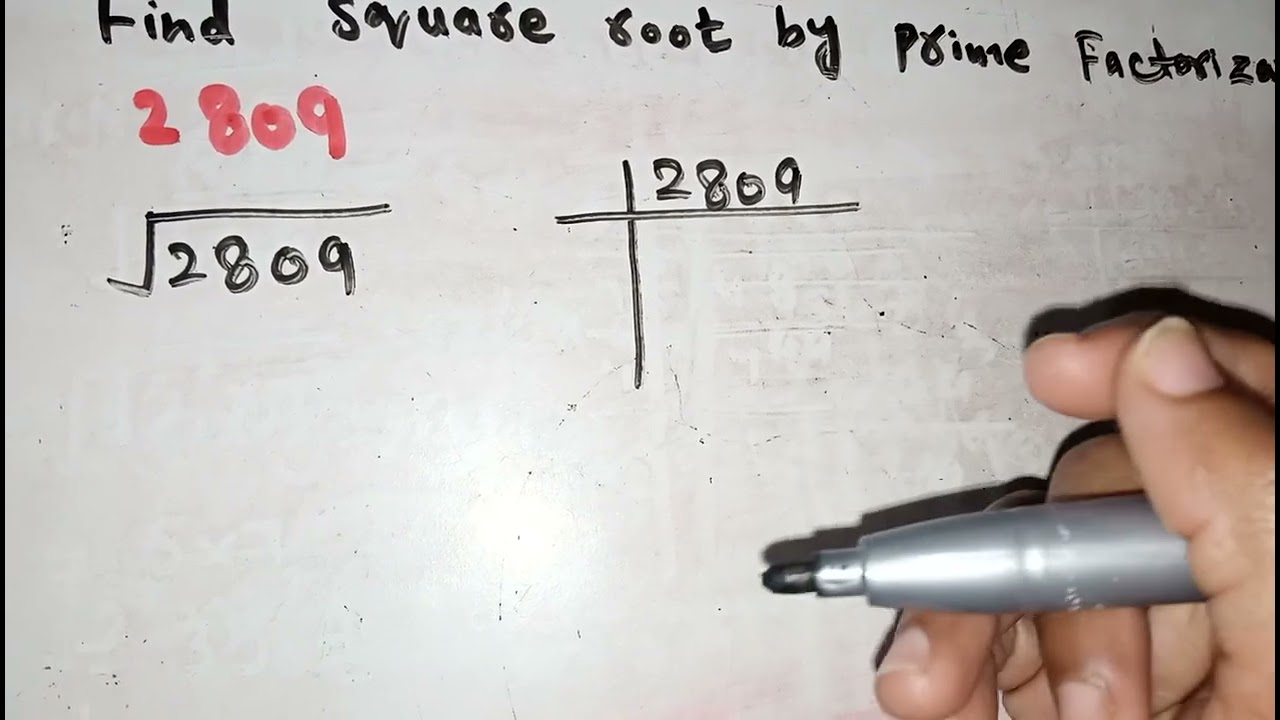 Find square root by prime Factoriza
2809
2809
√2809